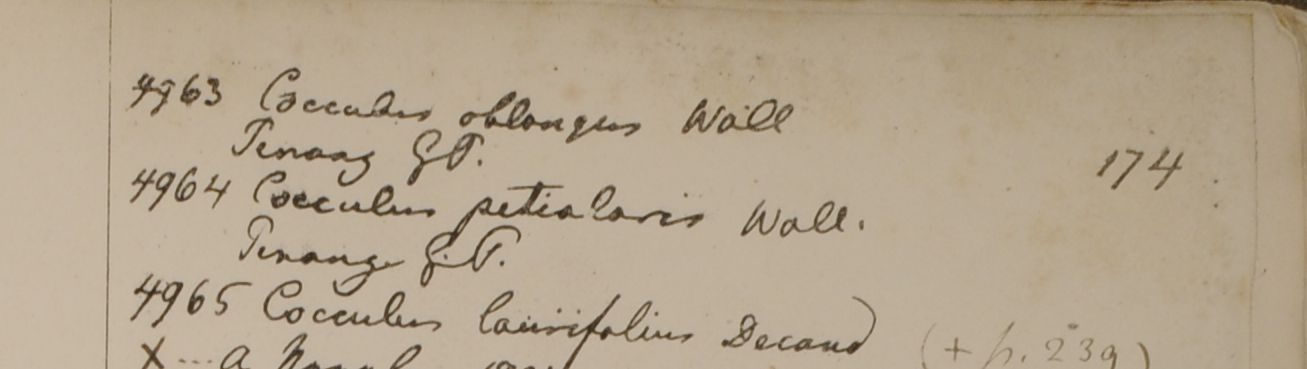 4963 Cocculus oblongus Wall
Penang G.P.
174
4964 Cocculus petiolaris Wall.
Penang G.P.
4965 Cocculus laurifolius Decand
(+ p. 239)
X ... a